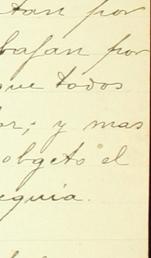 tan por
bajan por
que todos
or; y mas
obgeto el
equia.